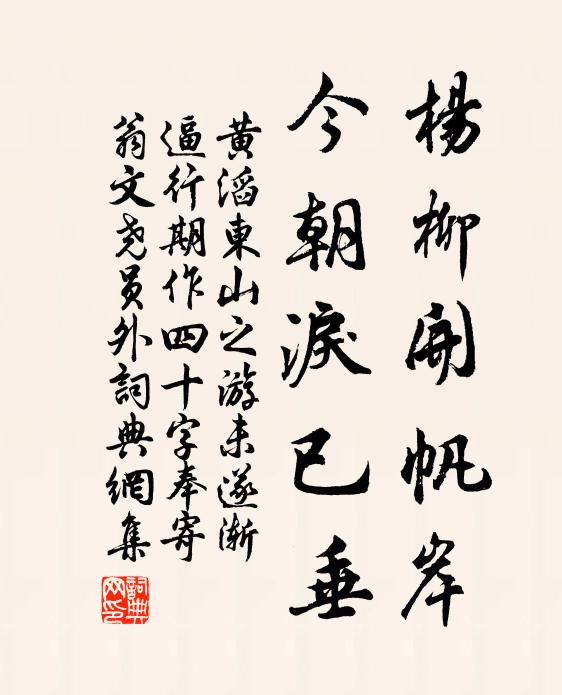 楊柳開帆岸
今朝淚已垂
黃滔東山之游未遂漸
逼行期作四十字奉寄
翁文堯員外詞典網集
詞典
网印